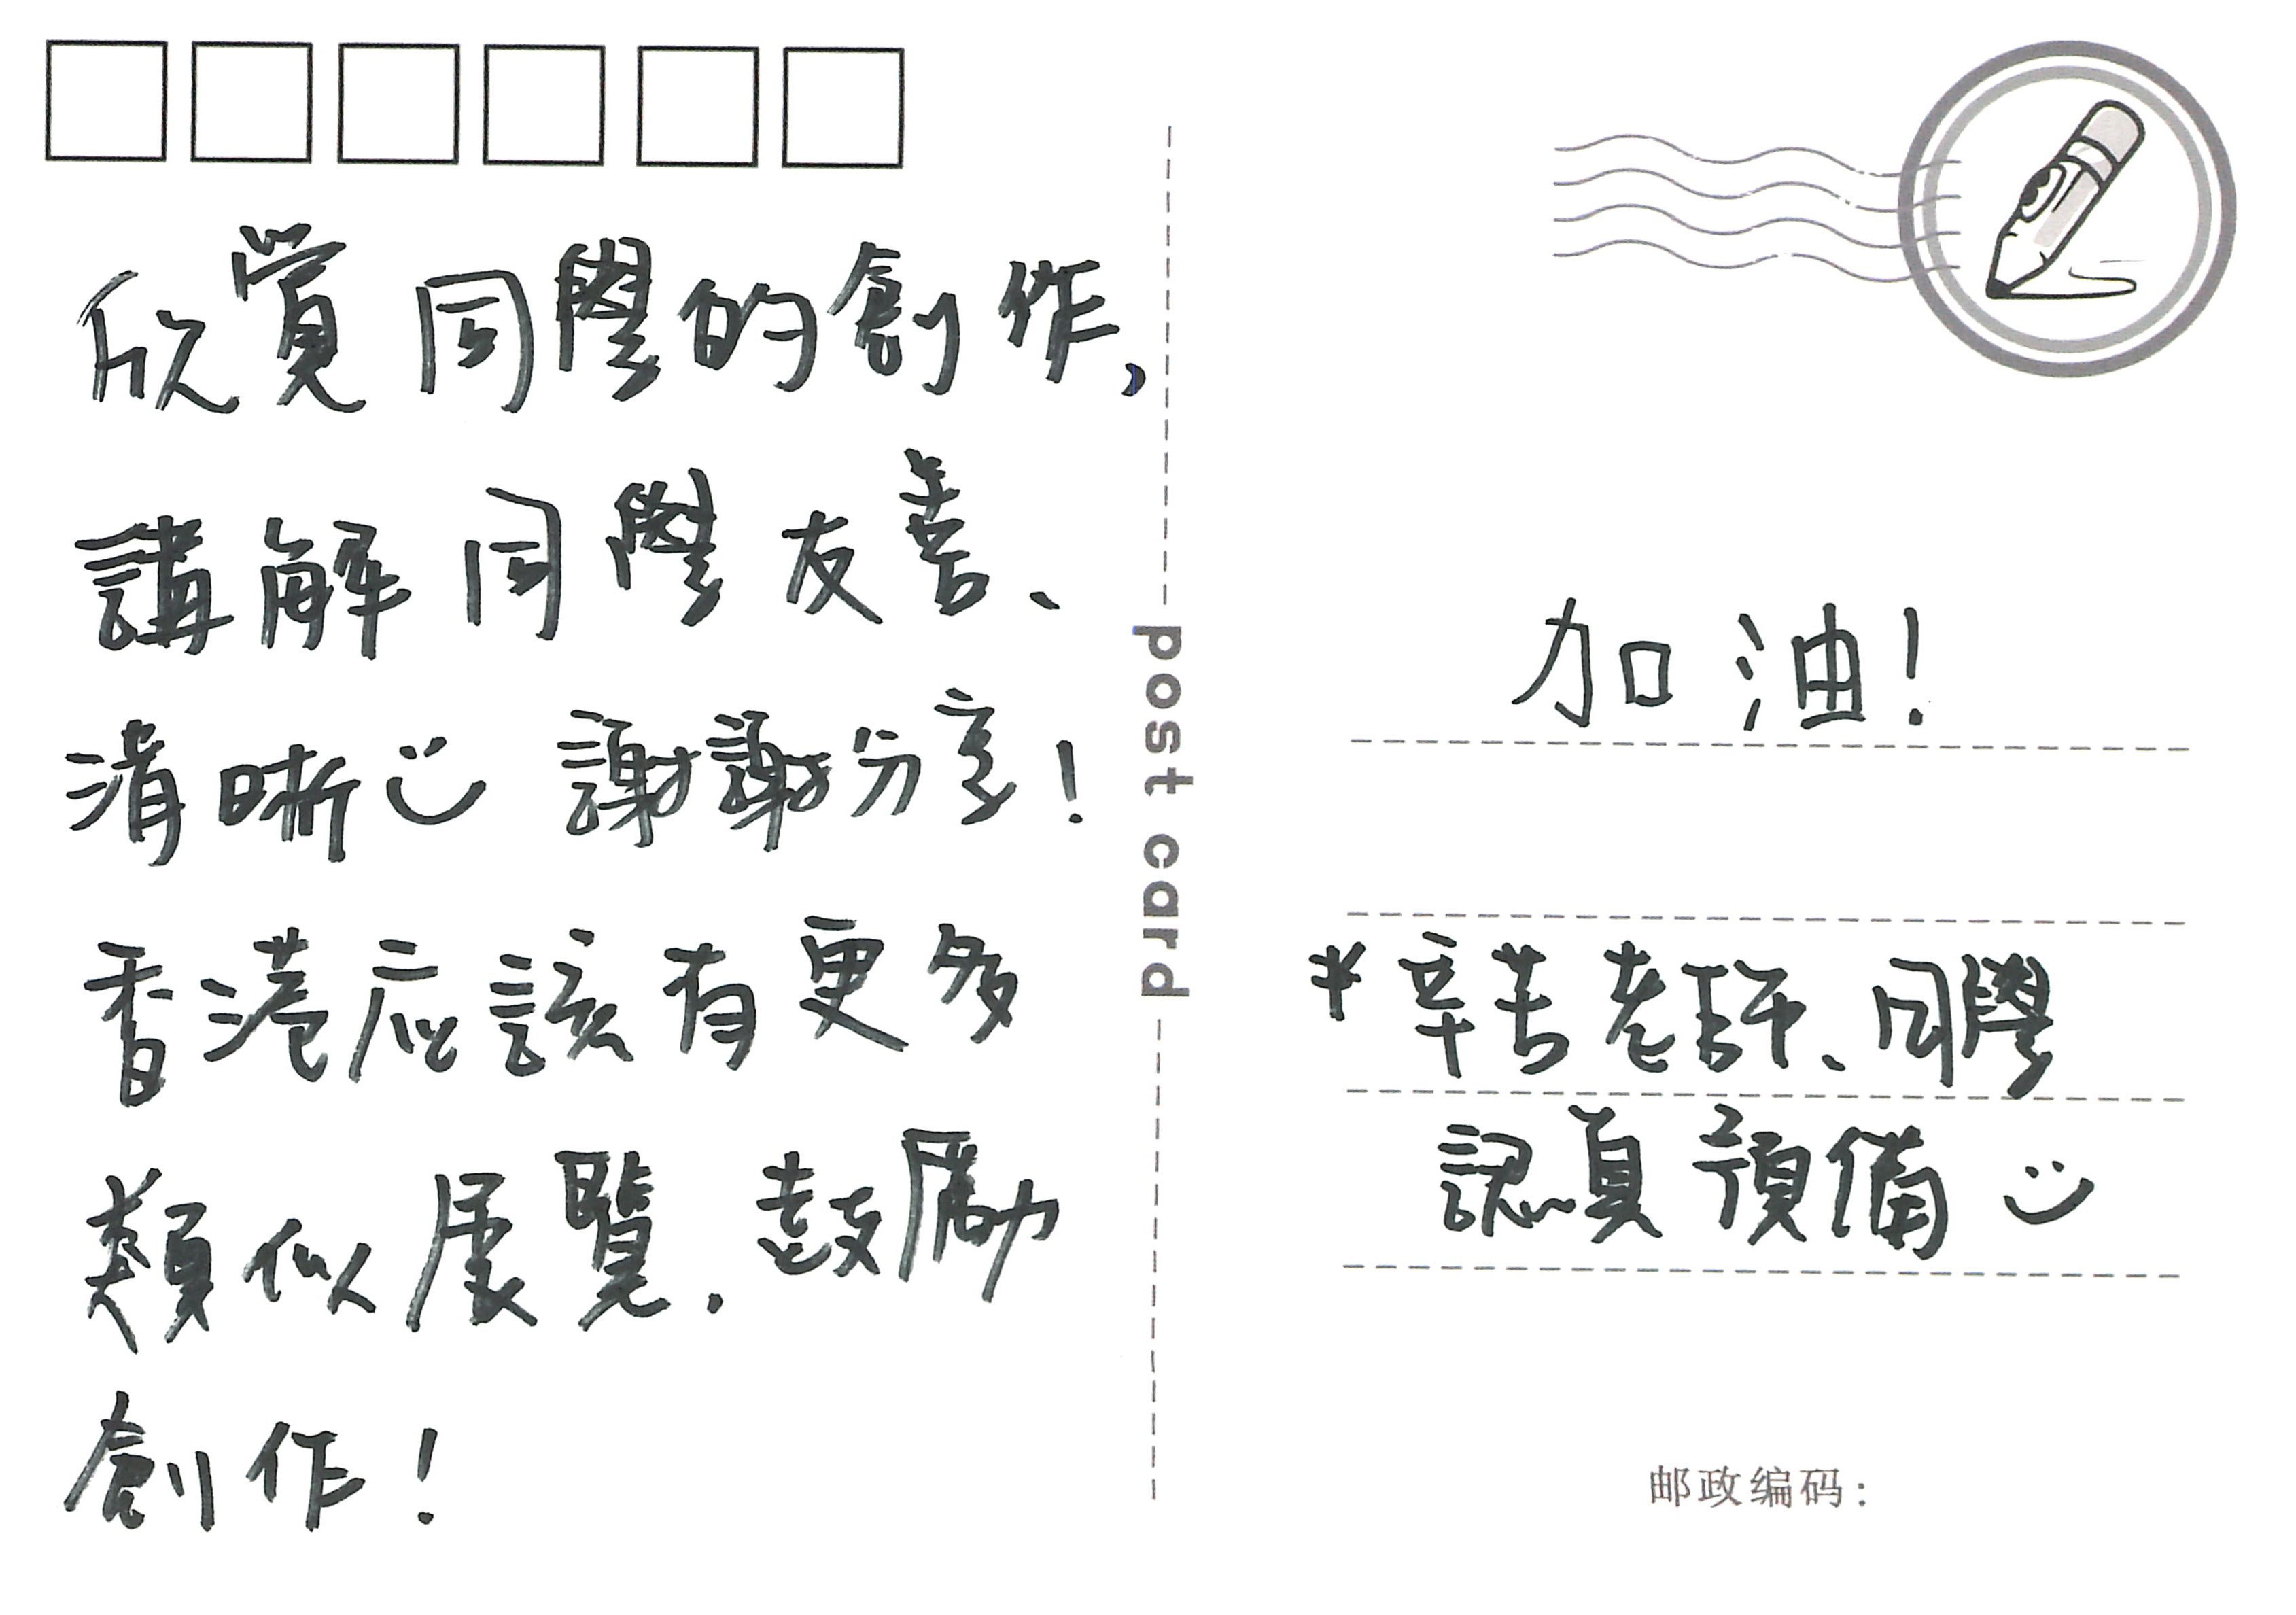 欣賞同學的創作，
講解同學友善、
清晰 謝謝分享！
香港应該有更多
類似展覽．鼓勵
創作！
post card
加油！
*辛苦老師、同學
認真預備
邮政编码：